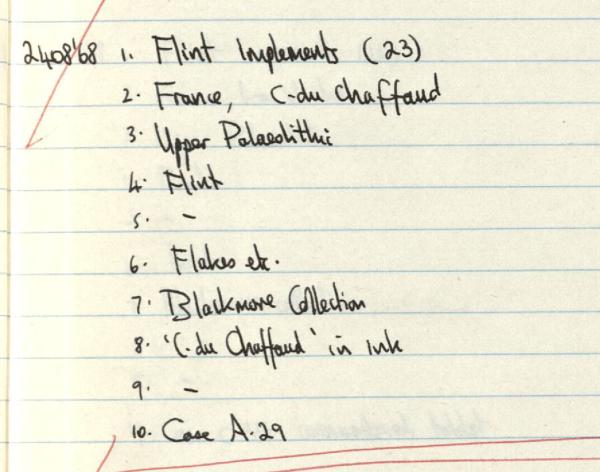 2408'68 1. Flint Implements (23)
2. France, C-du Chaffaud
3. Upper Palaeolithic
4. Flint
5. –
6. Flakes etc.
7. Blackmore Collection
8. 'C-du Chaffaud' in ink
9. –
10. Case A.29